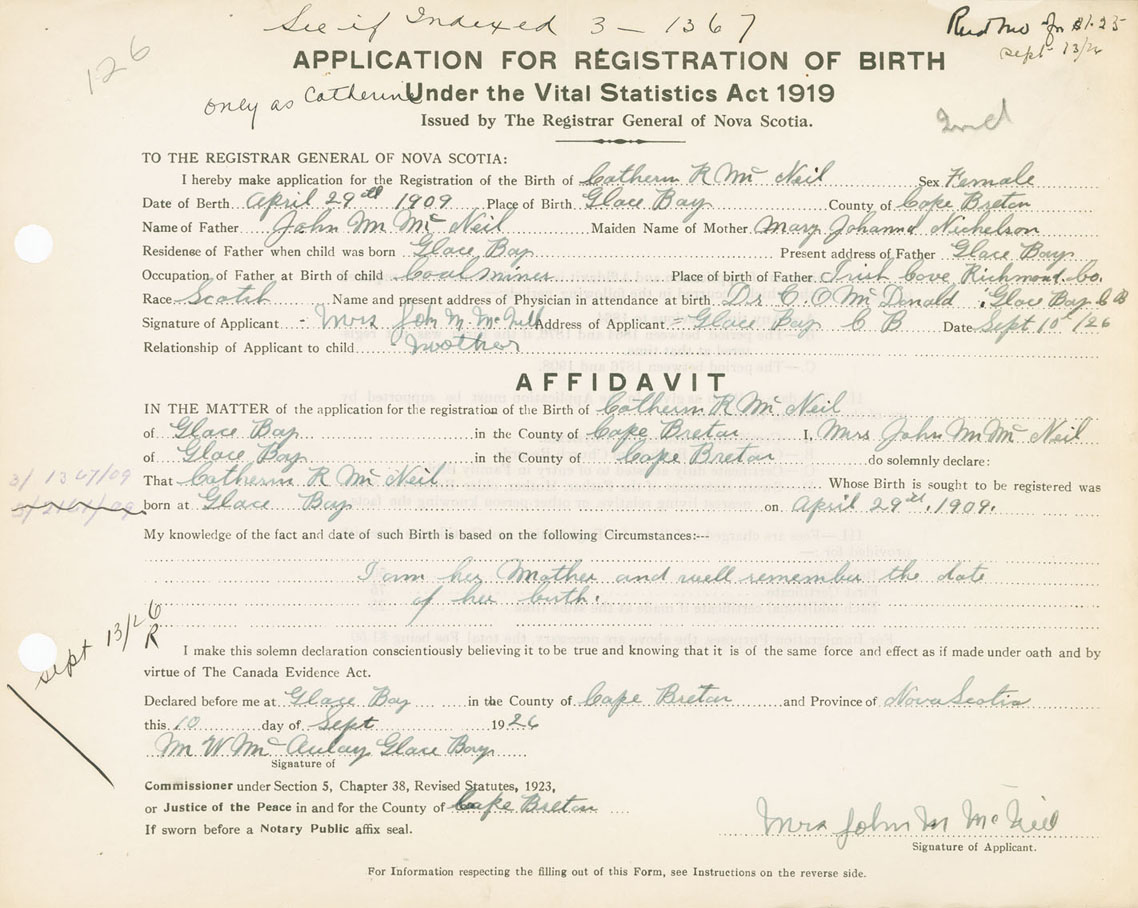 See if Indexed 3 - 1367
Recd mo for $1.25
Sept 13/26
126
APPLICATION FOR REGISTRATION OF BIRTH
only as Catherine Under the Vital Statistics Act 1919
Issued by The Registrar General of Nova Scotia.
TO THE REGISTRAR GENERAL OF NOVA SCOTIA:
I hereby make application for the Registration of the Birth of Catherin R McNeil Sex Female
Date of Berth April 29th 1909 Place of Birth Glace Bay County of Cape Breton
Name of Father John M McNeil Maiden Name of Mother Mary Johanna Nichelson
Residence of Father when child was born Glace Bay Present address of Father Glace Bay
Occupation of Father at Birth of child Coal miner Place of birth of Father Irish Cove, Richmond. Co.
Race Scotch Name and present address of Physician in attendance at birth Dr C. O McDonald Glace Bay C B
Signature of Applicant - Mrs John M McNeill Address of Applicant - Glace Bay C B Date Sept 10th /26
Relationship of Applicant to child mother
AFFIDAVIT
IN THE MATTER of the application for the registration of the Birth of Catherin R McNeil
of Glace Bay in the County of Cape Breton I, Mrs John M McNeil
of Glace Bay in the County of Cape Breton do solemnly declare:
3/1367/09
That Catherin R McNeil Whose Birth is sought to be registered was
born at Glace Bay on April 29th, 1909.
My knowledge of the fact and date of such Birth is based on the following Circumstances:---
I am her Mother and well remember the date
of her birth.
Sept 13/26
R
I make this solemn declaration conscientiously believing it to be true and knowing that it is of the same force and effect as if made under oath and by
virtue of The Canada Evidence Act.
Declared before me at Glace Bay in the County of Cape Breton and Province of Nova Scotia
this 10 day of Sept 1926
M W McAulay Glace Bay
Signature of
Commissioner under Section 5, Chapter 38, Revised Statutes, 1923,
or Justice of the Peace in and for the County of Cape Breton
If sworn before a Notary Public affix seal.
Mrs John M McNeil
Signature of Applicant.
For Information respecting the filling out of this Form, see Instructions on the reverse side.